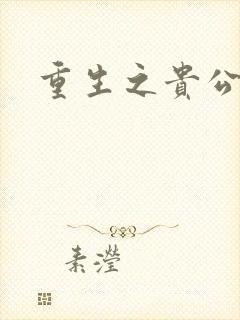 重生之貴公
素瀅